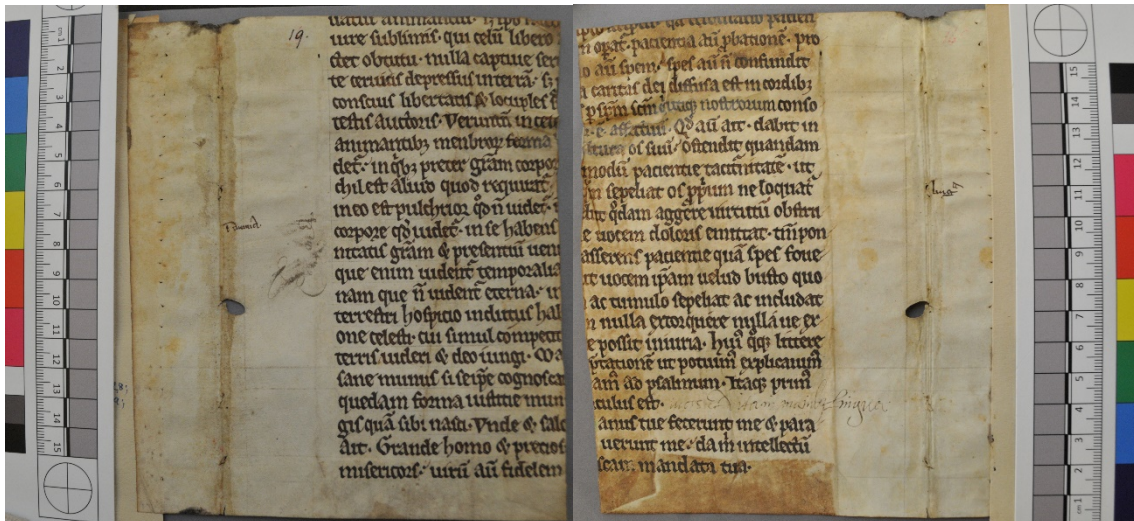 19.
uatiū animantiū.
uure sublimis. qui celū libero
ctet obtutu. nulla captiue ser
te ceruicis depressus in terrā. sꝫ
conscius libertatis & locuples
testis auctoris. Verūtn̄ in cete
animantibꝫ menbroꝝ forma
det̄. in qͥbꝫ preter grām corpo
chil est aliud quod requirat̄
in eo est pulchrior qđ n̄ uidet̄.
corpore qđ uidet̄. in se habens
nitatis grām & presentiū uenu
que enim uident̄ temporalia
nam que n̄ uident̄ eterna. ut
terrestri hospicio inditus hab
one celesti. cui simul competit
terris uideri & deo iungi. Ma
sane munus si seip̄e cognoscat
quedam forma iustitie mun
gis quā sibi nasci. Vnde & salo
Ait. Grande homo & precios
misericors. uirū aū fidelem
n opat̄. pacientia aū ꝓbationē. pro
o aū spem. spes aū n̄ confundit
a caritas dei diffusa est in cordibꝫ
p sp̄m scm̄ quoqꝫ nostrorum conso
ē affatum. Qđ aū ait. dabit in
os suū. ostendit quandam
modū pacientie taciturnitatē. ut
sepeliat os ꝓprium ne loquat̄
bit qͦdam aggere uirtutū obstru
e uocem doloris emittat. tm̄ pon
asserens pacientie quā spes foue
ut uocem ip̄am uelud busto quo
ac tumulo sepeliat ac includat
n nulla extorquere nulla ue ex
e possit iniuria. huiꝰ qͦqꝫ littere
ptationē ut potuimꝰ explicauimꝰ
am ad psalmum. Itaqꝫ primꝰ
culus est.
anus tue fecerunt me & para
uerunt me. da m̄ intellectū
scam mandata tua.